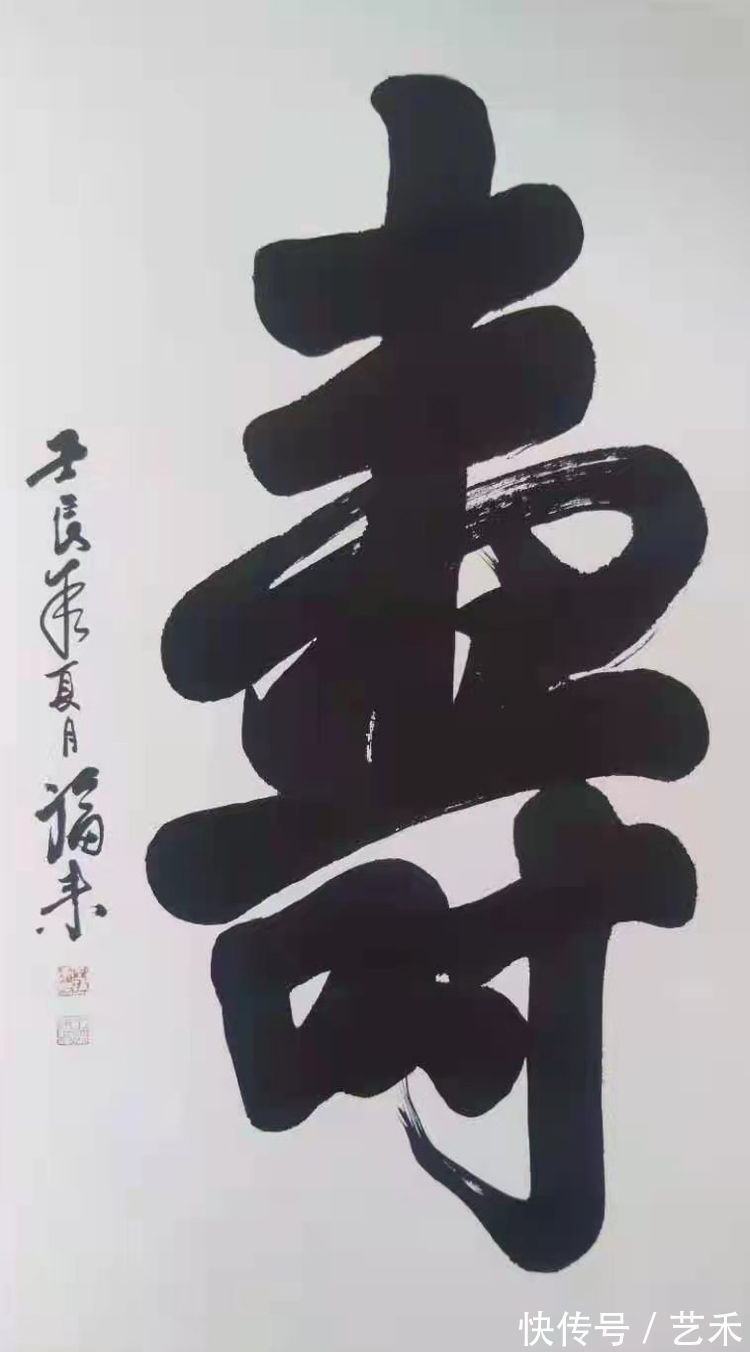 壽
壬辰年夏月福来
快传号 / 艺禾